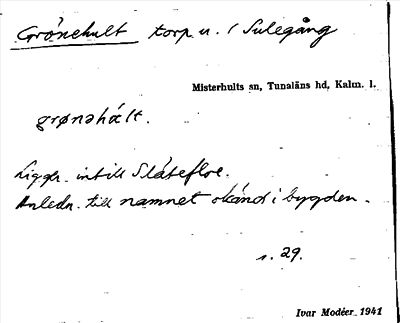 Grönehult torp u. / Sulegång
Misterhults sn, Tunaläns hd, Kalm. l.
grønəhált.
Ligger intill Slåtefloe.
Anledn. till namnet okänd i bygden.
s. 29.
Ivar Modéer 1941